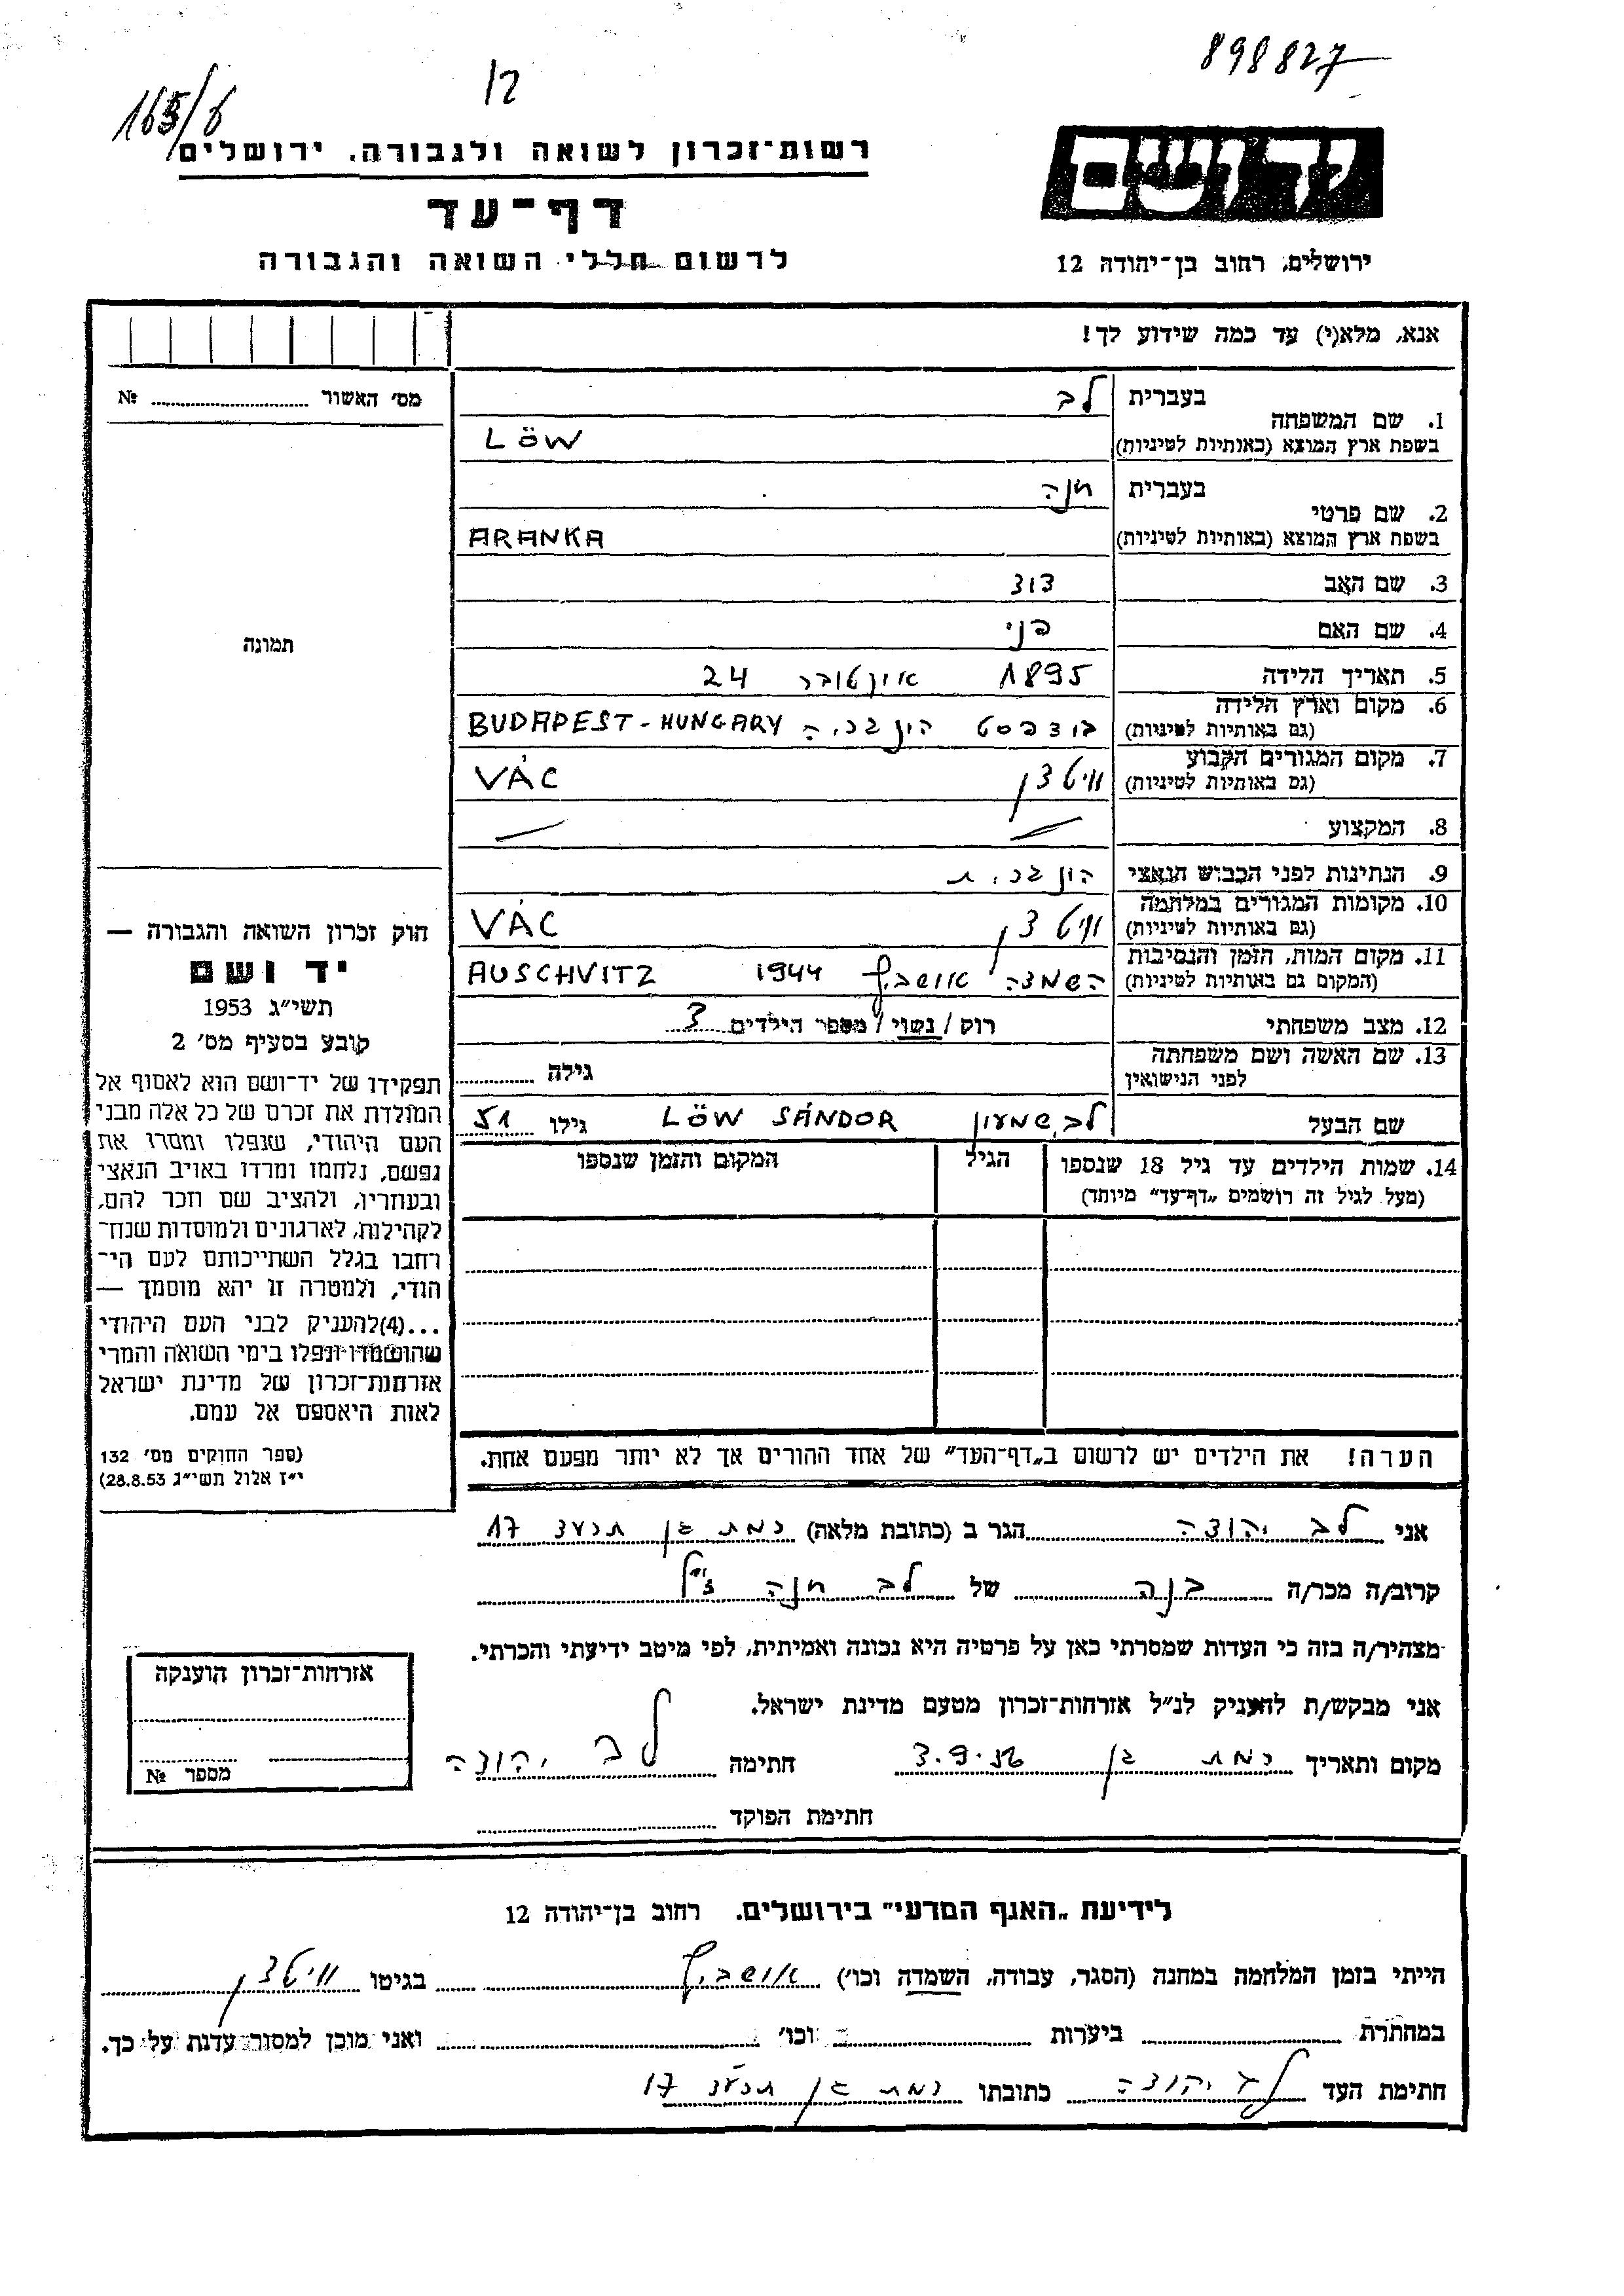 898827
165/6
12
רשות-זכרון לשואה ולגבורה. ירושלים
דף-עד
לרשום חללי השואה והגבורה
יד ושם
ירושלים, רחוב בן-יהודה 12
אנא, מלא(י) עד כמה שידוע לך!
מס׳ האשור № ........
תמונה
1. שם המשפחה בעברית לב
בשפת ארץ המוצא (באותיות לטיניות) LÖW
2. שם פרטי בעברית חנה
בשפת ארץ המוצא (באותיות לטיניות) ARANKA
3. שם האב דוד
4. שם האם פני
5. תאריך הלידה 1895 אוקטובר 24
6. מקום וארץ הלידה (גם באותיות לטיניות) בודפסט הונגריה BUDAPEST-HUNGARY
7. מקום המגורים הקבוע (גם באותיות לטיניות) וויטצן VÁC
8. המקצוע — —
9. הנתינות לפני הכבוש הנאצי הונגרית
10. מקומות המגורים במלחמה (גם באותיות לטיניות) וויטצן VÁC
11. מקום המות, הזמן והנסיבות (המקום גם באותיות לטיניות) השמדה אושביץ 1944 AUSCHVITZ
12. מצב משפחתי רוק / נשוי / מספר הילדים 3
13. שם האשה ושם משפחתה לפני הנישואין גילה ........
שם הבעל לב שמעון LÖW SÁNDOR גילו 51
14. שמות הילדים עד גיל 18 שנספו (מעל לגיל זה רושמים „דף-עד״ מיוחד) הגיל המקום והזמן שנספו
הערה! את הילדים יש לרשום ב„דף-העד״ של אחד ההורים אך לא יותר מפעם אחת.
חוק זכרון השואה והגבורה —
יד ושם
תשי״ג 1953
קובע בסעיף מס׳ 2
תפקידו של יד-ושם הוא לאסוף אל
המולדת את זכרם של כל אלה מבני
העם היהודי, שנפלו ומסרו את
נפשם, נלחמו ומרדו באויב הנאצי
ובעוזריו, ולהציב שם וזכר להם,
לקהילות, לארגונים ולמוסדות שנח-
רבו בגלל השתייכותם לעם הי-
הודי, ולמטרה זו יהא מוסמך —
...(4)להעניק לבני העם היהודי
שהושמדו ונפלו בימי השואה והמרי
אזרחות-זכרון של מדינת ישראל
לאות היאספם אל עמם.
(ספר החוקים מס׳ 132
י״ז אלול תשי״ג 28.8.53)
אני לב יהודה הגר ב (כתובת מלאה) רמת גן 17
קרוב/ה מכר/ה בנה של לב חנה ז״ל
מצהיר/ה בזה כי העדות שמסרתי כאן על פרטיה היא נכונה ואמיתית, לפי מיטב ידיעתי והכרתי.
אני מבקש/ת להעניק לנ״ל אזרחות-זכרון מטעם מדינת ישראל.
מקום ותאריך רמת גן 3.9.56 חתימה לב יהודה
חתימת הפוקד ........
אזרחות-זכרון הוענקה
מספר №
לידיעת „האגף המדעי״ בירושלים. רחוב בן-יהודה 12
הייתי בזמן המלחמה במחנה (הסגר, עבודה, השמדה וכו׳) אושביץ בגיטו וויטצן
במחתרת ........ ביערות ........ וכו׳ ........ ואני מוכן למסור עדות על כך.
חתימת העד לב יהודה כתובתו רמת גן 17